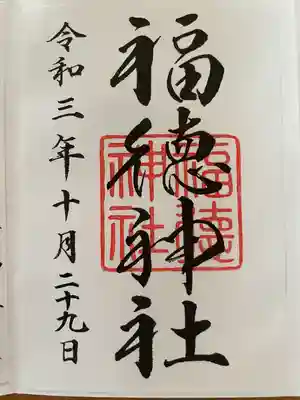 福徳神社
福徳
神社
令和三年十月二十九日